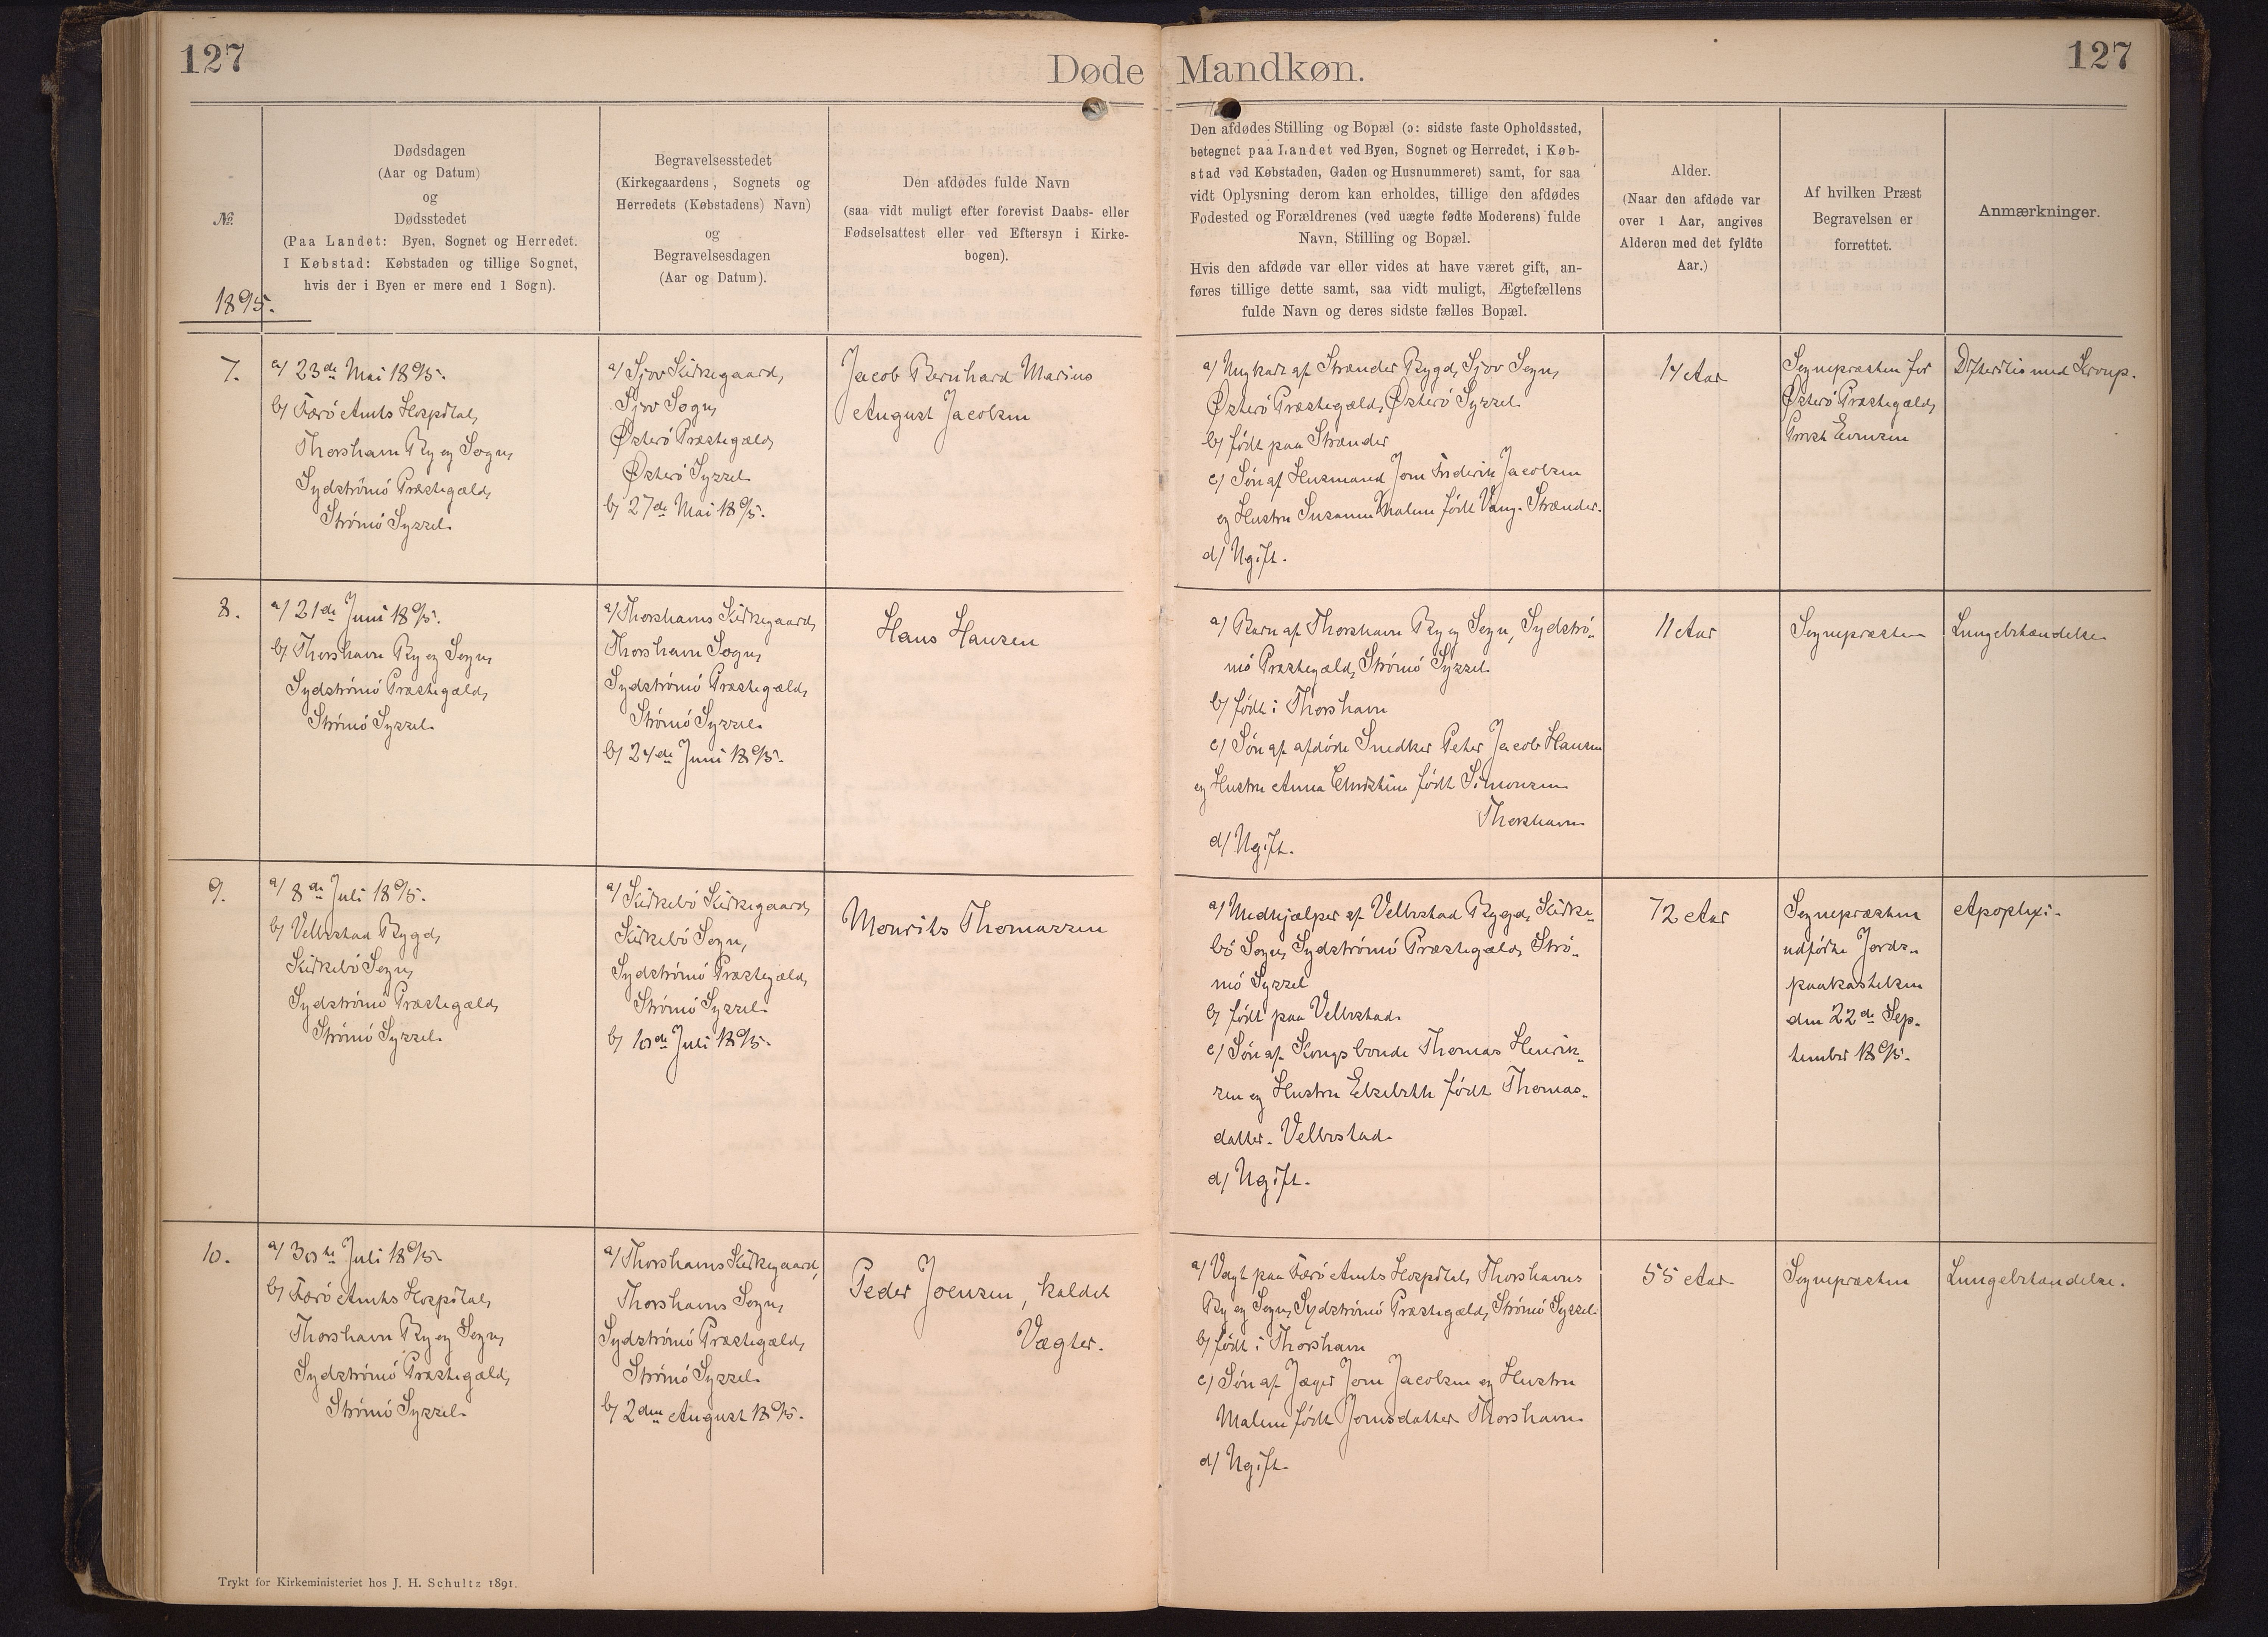 127
Døde Mandkøn.
127
№
1895.
Dødsdagen
(Aar og Datum)
og
Dødsstedet
(Paa Landet: Byen, Sognet og Herredet.
I Købstad: Købstaden og tillige Sognet,
hvis der i Byen er mere end 1 Sogn).
Begravelsesstedet
(Kirkegaardens, Sognets og
Herredets (Købstadens) Navn)
og
Begravelsesdagen
(Aar og Datum).
Den afdødes fulde Navn
(saa vidt muligt efter forevist Daabs- eller
Fødselsattest eller ved Eftersyn i Kirke-
bogen).
Den afdødes Stilling og Bopæl (ɔ: sidste faste Opholdssted,
betegnet paa Landet ved Byen, Sognet og Herredet, i Køb-
stad ved Købstaden, Gaden og Husnummeret) samt, for saa
vidt Oplysning derom kan erholdes, tillige den afdødes
Fødested og Forældrenes (ved uægte fødte Moderens) fulde
Navn, Stilling og Bopæl.
Hvis den afdøde var eller vides at have været gift, an-
føres tillige dette samt, saa vidt muligt, Ægtefællens
fulde Navn og deres sidste fælles Bopæl.
Alder.
(Naar den afdøde var
over 1 Aar, angives
Alderen med det fyldte
Aar.)
Af hvilken Præst
Begravelsen er
forrettet.
Anmærkninger.
7.
a/ 23de Mai 1895.
b/ Færö Amts Hospital,
Thorshavn By og Sogn,
Sydströmö Præstegæld,
Strömö Syssel.
a/ Sjov Kirkegaard,
Sjov Sogn,
Østerö Præstegæld,
Østerö Syssel
b/ 27de Mai 1895.
Jacob Bernhard Marius
August Jacobsen
a/ Ungkarl af Strænder Bygd, Sjov Sogn,
Østerö Præstegæld, Østerö Syssel
b/ født paa Strænder
c/ Søn af Husmand Joen Frederik Jacobsen
og Hustru Susanne Malene født Vang. Strænder.
d/ Ugift.
14 Aar
Sognepræsten for
Østerö Præstegæld,
Provst Evensen
Difteritis med Kroup.
8.
a/ 21de Juni 1895.
b/ Thorshavn By og Sogn,
Sydströmö Præstegæld,
Strömö Syssel.
a/ Thorshavns Kirkegaard,
Thorshavn Sogn,
Sydströmö Præstegæld,
Strömö Syssel.
b/ 24de Juni 1895.
Hans Hansen
a/ Barn af Thorshavn By og Sogn, Sydströ-
mö Præstegæld, Strömö Syssel
b/ født i Thorshavn
c/ Søn af afdøde Snedker Peter Jacob Hansen
og Hustru Anna Christine født Simonsen
Thorshavn
d/ Ugift.
11 Aar
Sognepræsten
Lungebetændelse
9.
a/ 8de Juli 1895.
b/ Velbestad Bygd,
Kirkebö Sogn,
Sydströmö Præstegæld,
Strömö Syssel.
a/ Kirkebö Kirkegaard,
Kirkebö Sogn,
Sydströmö Præstegæld,
Strömö Syssel.
b/ 10de Juli 1895.
Mourits Thomassen
a/ Medhjælper af Velbestad Bygd, Kirke-
bö Sogn, Sydströmö Præstegæld, Strö-
mö Syssel
b/ født paa Velbestad.
c/ Søn af Kongsbonde Thomas Henrik-
sen og Hustru Elsebeth født Thomas-
datter. Velbestad.
d/ Ugift.
72 Aar
Sognepræsten
udførte Jords-
paakastelsen
den 22de Sep-
tember 1895.
Apoplexi.
10.
a/ 30te Juli 1895.
b/ Færö Amts Hospital,
Thorshavn By og Sogn,
Sydströmö Præstegæld,
Strömö Syssel.
a/ Thorshavns Kirkegaard,
Thorshavns Sogn,
Sydströmö Præstegæld,
Strömö Syssel.
b/ 2den August 1895.
Peder Joensen, kaldet
Vægter.
a/ Vægt paa Færö Amts Hospital, Thorshavns
By og Sogn, Sydströmö Præstegæld, Strömö Syssel.
b/ født i Thorshavn
c/ Søn af Jæger Joen Jacobsen og Hustru
Malene født Joensdatter Thorshavn.
d/ Ugift.
55 Aar
Sognepræsten
Lungebetændelse.
Trykt for Kirkeministeriet hos J. H. Schultz 1891.